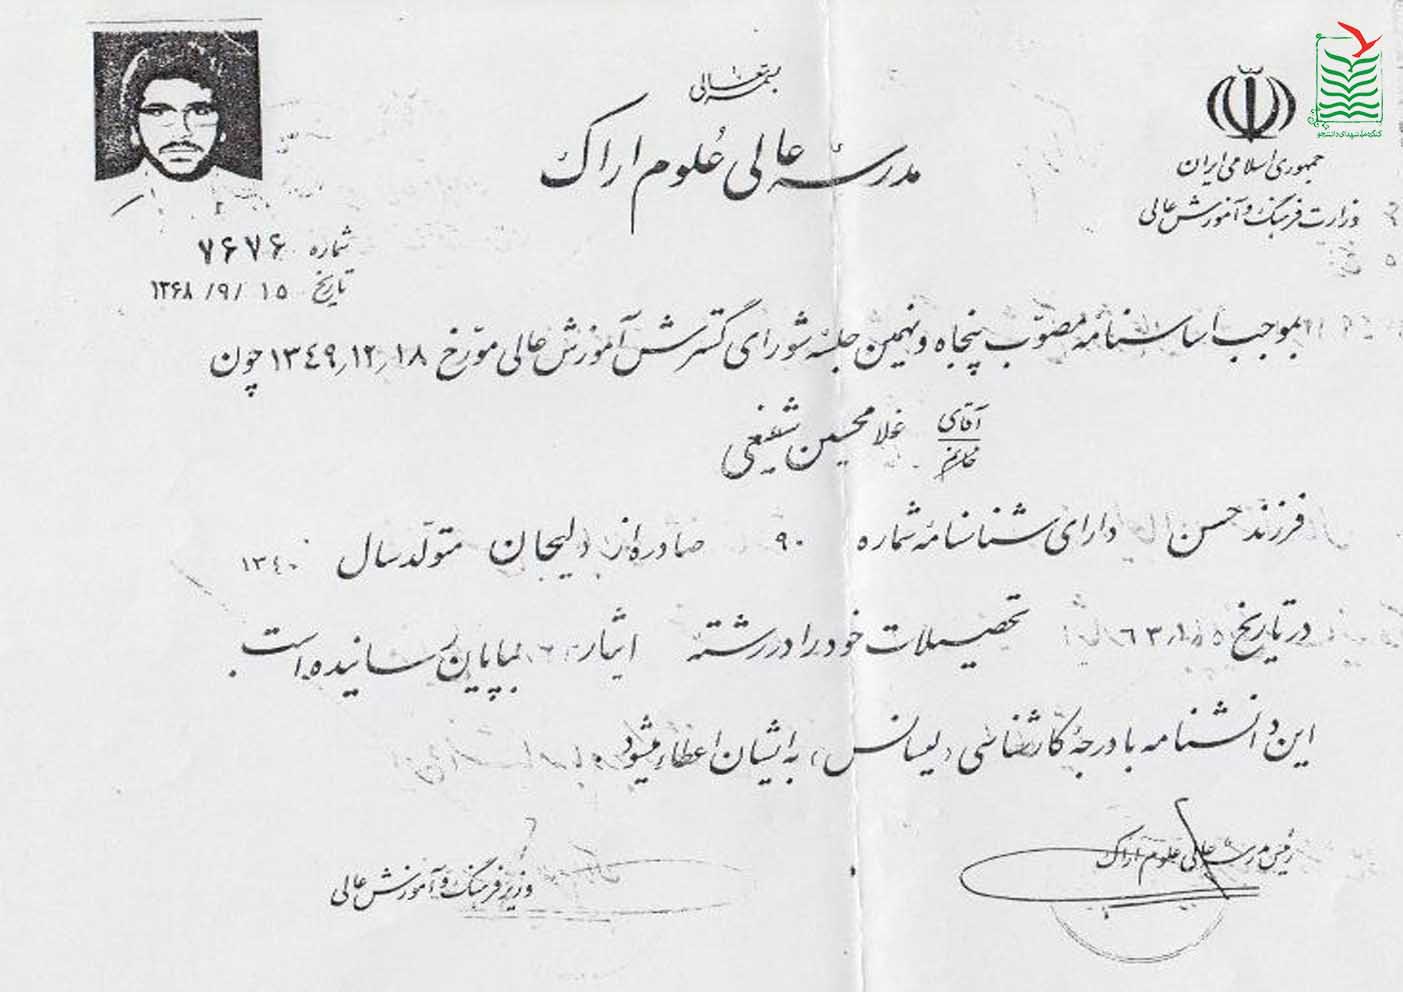 بسمه تعالی
مدرسهٔ عالی علوم اراک
جمهوری اسلامی ایران
وزارت فرهنگ و آموزش عالی
کنگره ملی شهدای دانشجو
شماره ۷۶۷۶
تاریخ ۱۵ /۹/ ۱۳۶۸
بموجب اساسنامه مصوّب پنجاه و نهمین جلسهٔ شورای گسترش آموزش عالی مورّخ ۱۳۴۹٫۱۲٫۱۸ چون
آقای
خانم
غلامحسین شفیعی
فرزند حسن دارای شناسنامهٔ شماره ۹۰ صادره از دلیجان متولّد سال ۱۳۴۰
در تاریخ تحصیلات خود را در رشتهٔ ایثار بپایان رسانیده است.
این دانشنامه با درجهٔ کارشناسی (لیسانس) به ایشان اعطاء میشود
رئیس مدرسهٔ عالی علوم اراک
وزیر فرهنگ و آموزش عالی